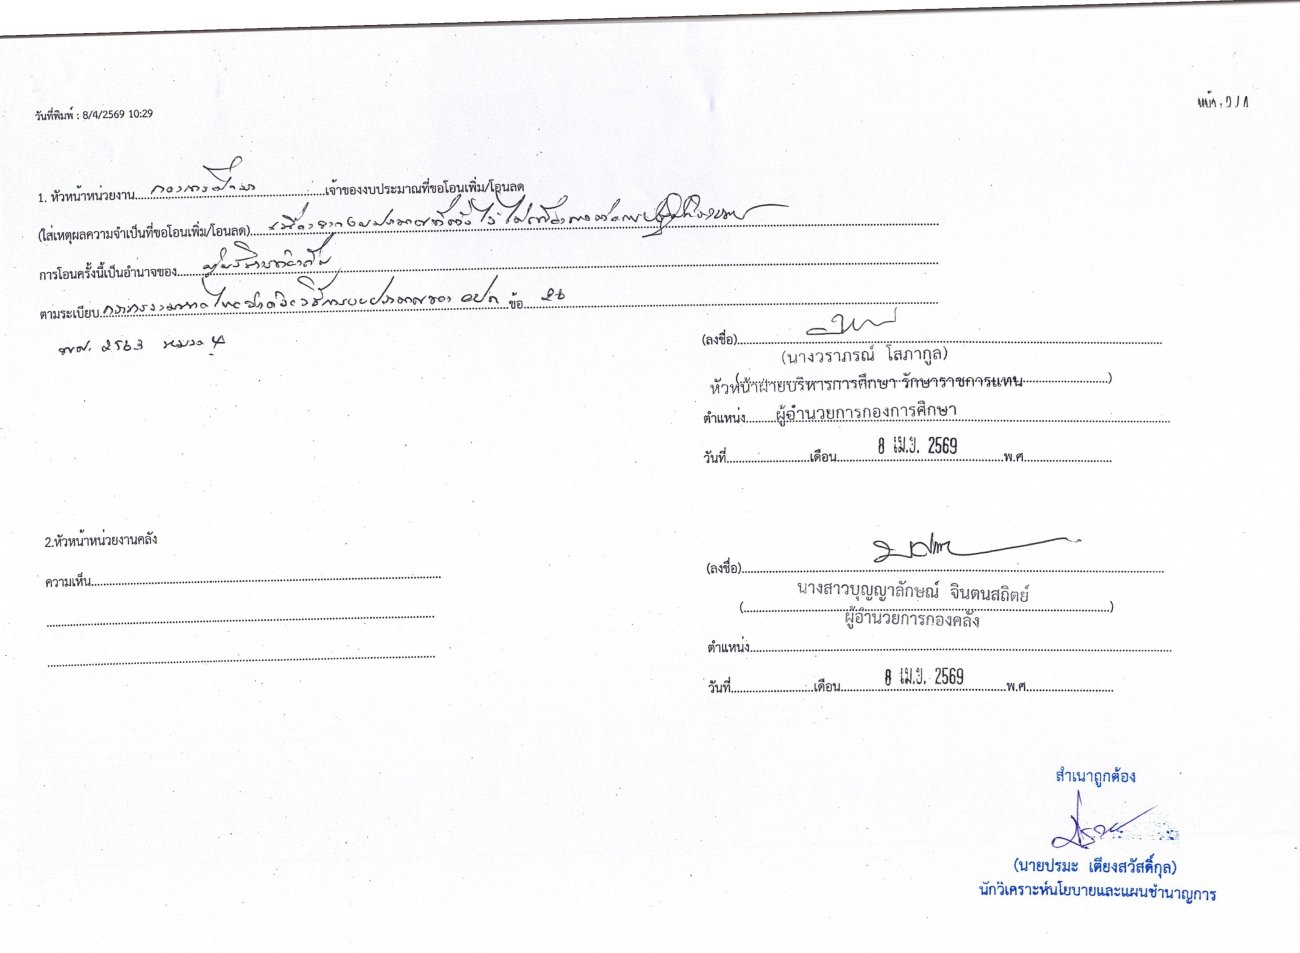 วันที่พิมพ์ : 8/4/2569 10:29
หน้า :
1. หัวหน้าหน่วยงาน กองการศึกษา เจ้าของงบประมาณที่ขอโอนเพิ่ม/โอนลด
(ใส่เหตุผลความจำเป็นที่ขอโอนเพิ่ม/โอนลด) เนื่องจากงบประมาณที่ตั้งไว้ไม่เพียงพอต่อการปฏิบัติงาน
การโอนครั้งนี้เป็นอำนาจของ ผู้บริหารท้องถิ่น
ตามระเบียบ กระทรวงมหาดไทยว่าด้วยวิธีการงบประมาณของ อปท. ข้อ
พ.ศ. 2563 หมวด 4
(ลงชื่อ)
(นางวราภรณ์ โสภากูล)
หัวหน้าฝ่ายบริหารการศึกษา รักษาราชการแทน
ตำแหน่ง ผู้อำนวยการกองการศึกษา
วันที่ เดือน 8 เม.ย. 2569 พ.ศ.
2.หัวหน้าหน่วยงานคลัง
ความเห็น
(ลงชื่อ)
นางสาวบุญญาลักษณ์ จินตนสถิตย์
ผู้อำนวยการกองคลัง
ตำแหน่ง
วันที่ เดือน 8 เม.ย. 2569 พ.ศ.
สำเนาถูกต้อง
(นายปรมะ เตียงสวัสดิ์กุล)
นักวิเคราะห์นโยบายและแผนชำนาญการ